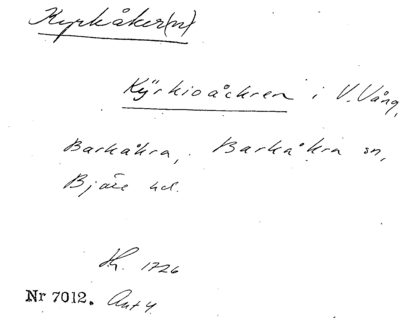 Kyrkåker(n)
Kÿrkioåckren i V. Vång,
Barkåkra, Barkåkra sn,
Bjäre hd.
1726
Nr 7012. Ant 4.